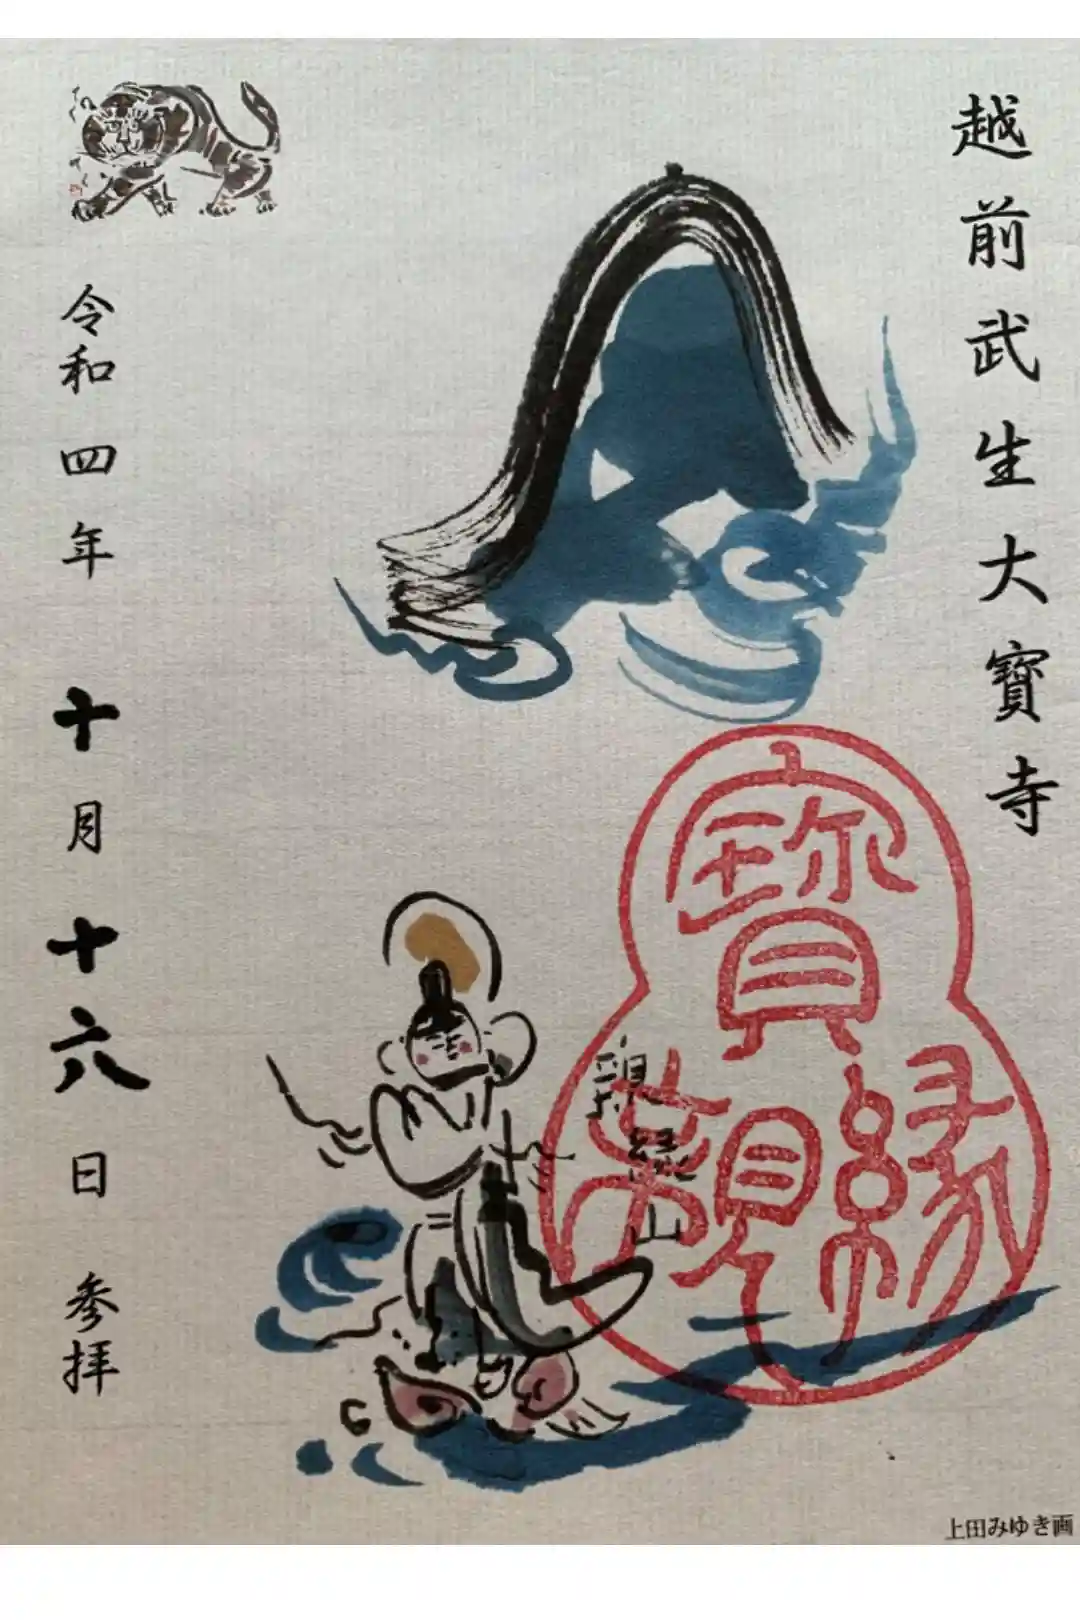 越前武生大寳寺
令和四年十月十六日参拝
寳縁観
山
上田みゆき画